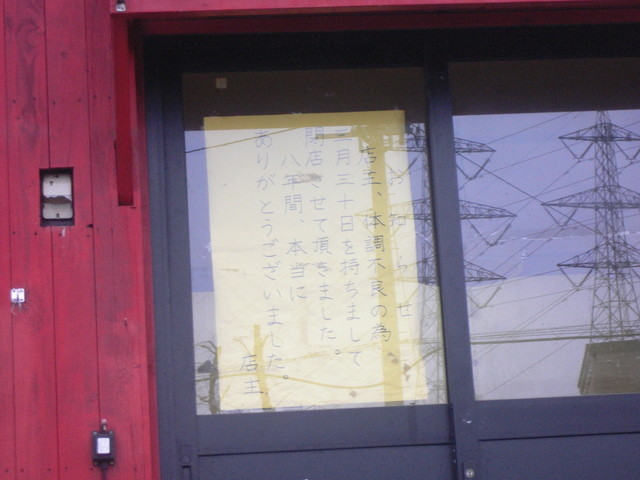 おしらせ
店主、体調不良の為
三月三十日を持ちまして
閉店させて頂きました。
八年間、本当に
ありがとうございました。
店主